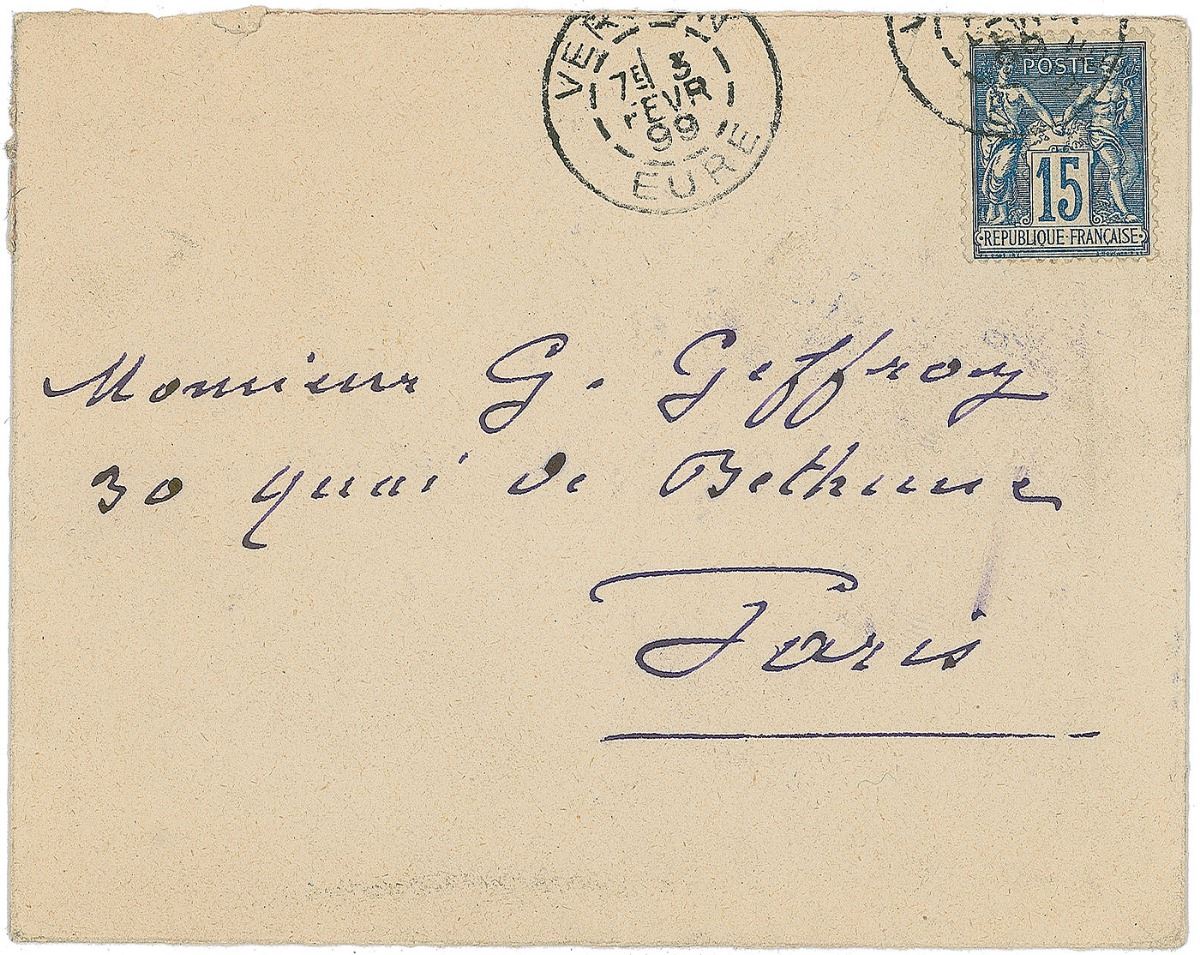 7E 3
FEVR
99
EURE
POSTE
15
REPUBLIQUE·FRANÇAISE
Monsieur G. Geffroy
30 quai de Bethune
Paris